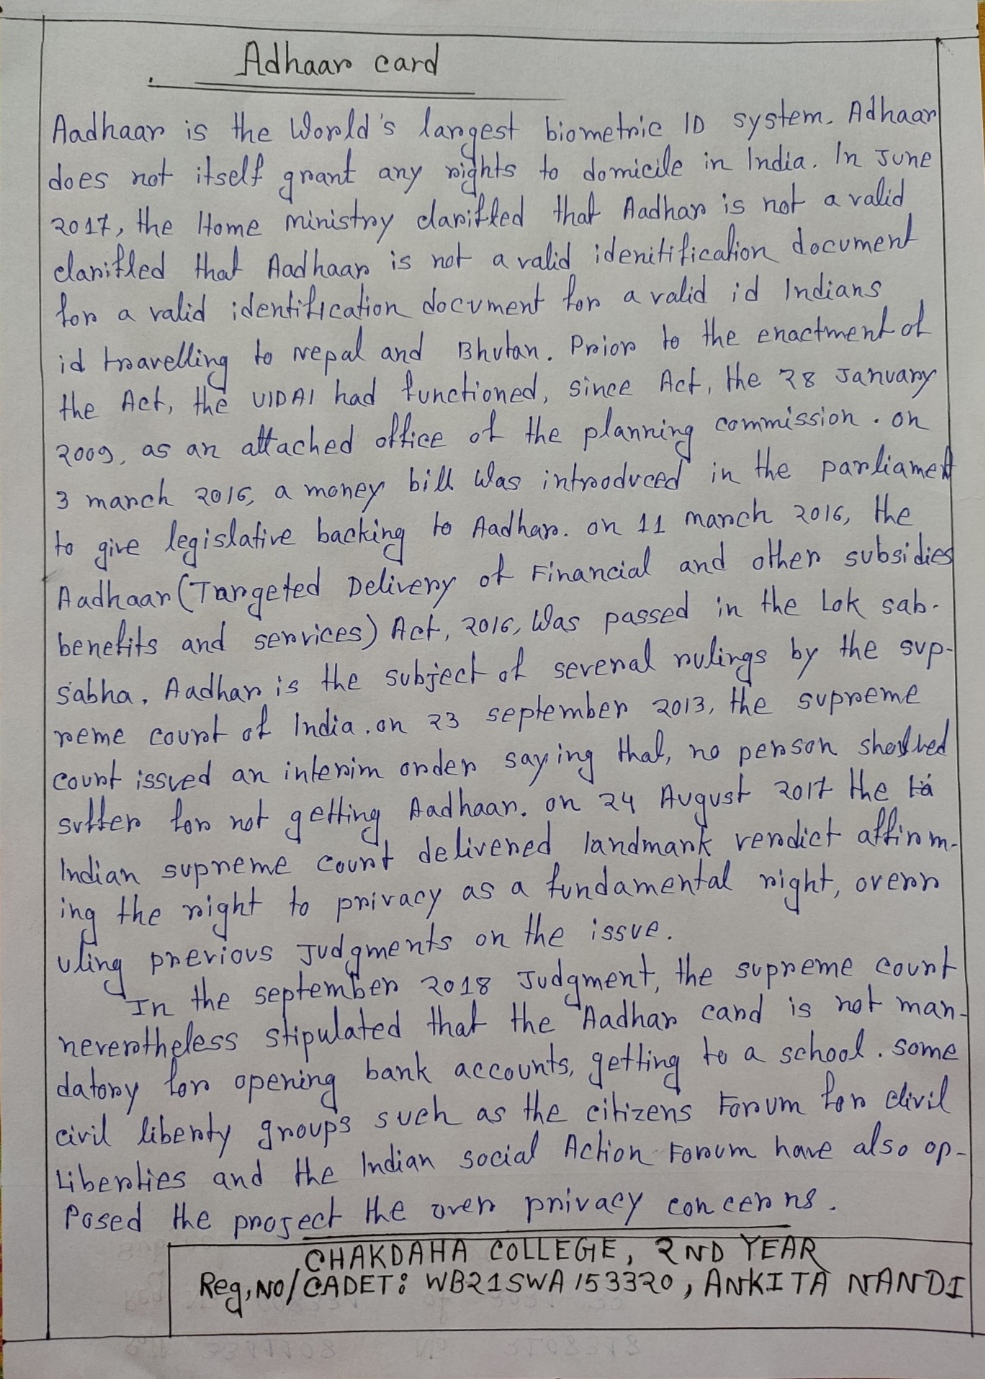 Adhaar card
Aadhaar is the World's largest biometric ID system. Adhaar
does not itself grant any rights to domicile in India. In June
2017, the Home ministry clarifled that Aadhar is not a valid
clarifled that Aadhaar is not a valid idenitification document
for a valid identification document for a valid id Indians
id travelling to nepal and Bhutan. Prior to the enactment of
the Act, the UIDAI had functioned, since Act, the 28 January
2009, as an attached office of the planning commission. on
3 march 2016, a money bill Was introduced in the parliament
to give legislative backing to Aadhar. on 11 march 2016, the
Aadhaar (Targeted Delivery of Financial and other subsidies
benefits and services) Act, 2016, Was passed in the Lok sab-
sabha. Aadhar is the subject of several rulings by the sup-
reme court of India. on 23 september 2013, the supreme
court issued an interim order saying that, no person should
suffer for not getting Aadhaar. on 24 August 2017 the
Indian supreme court delivered landmark verdict affirm-
ing the right to privacy as a fundamental right, overr
uling previous Judgments on the issue.
In the september 2018 Judgment, the supreme court
nevertheless stipulated that the Aadhar card is not man-
datory for opening bank accounts, getting to a school. some
civil liberty groups such as the citizens Forum for civil
Liberties and the Indian social Action Forum have also op-
Posed the project the over privacy concerns.
CHAKDAHA COLLEGE, 2ND YEAR
Reg,NO/CADET: WB21SWA153320, ANKITA NANDI